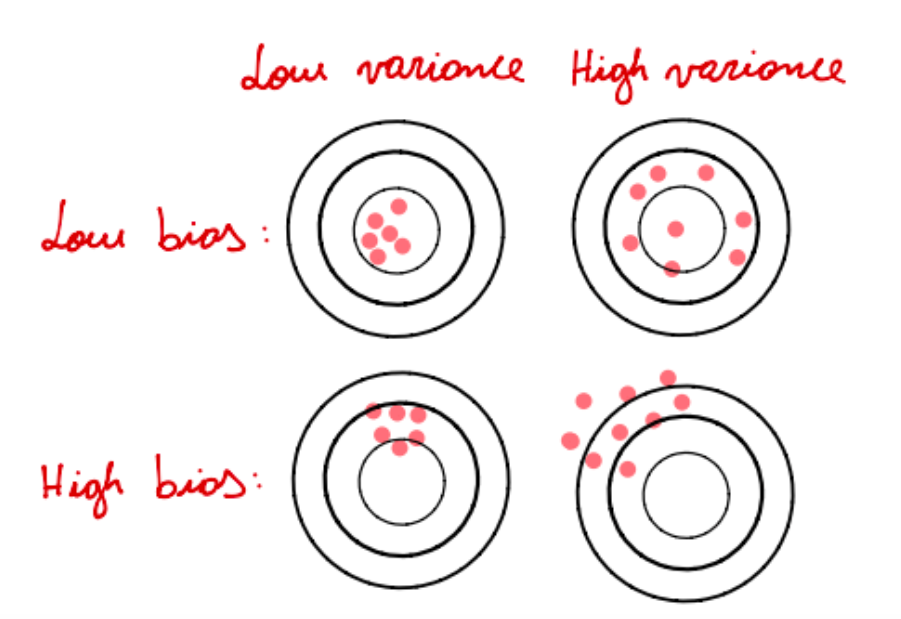 Low variance High variance
Low bias:
High bias: